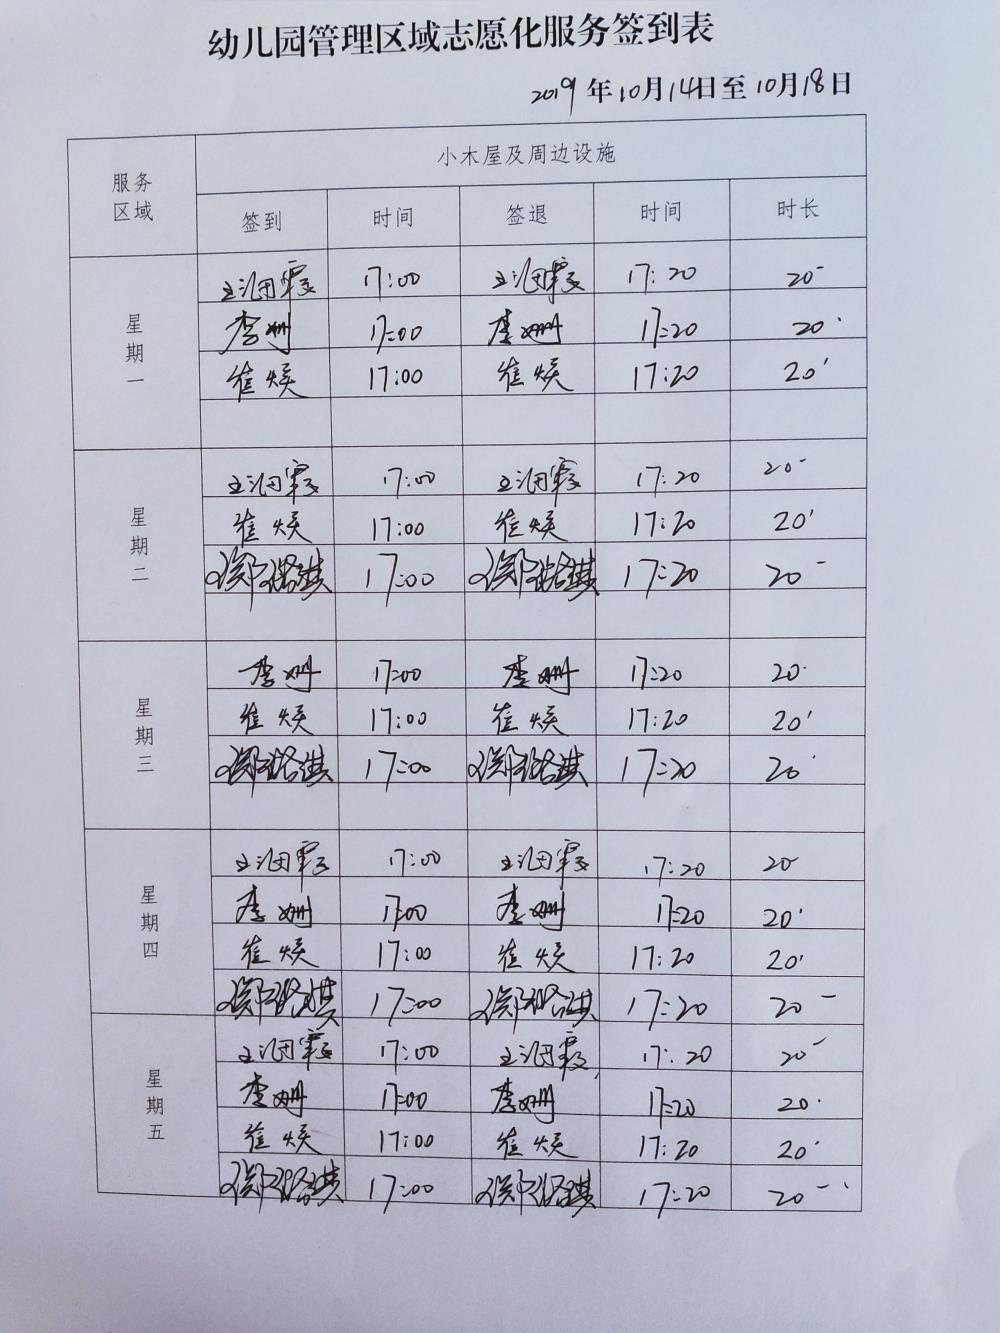 幼儿园管理区域志愿化服务签到表
2019年10月14日至10月18日
服务区域 小木屋及周边设施
签到 时间 签退 时间 时长
星期一
17:00 17:20 20'
李姗 17:00 李姗 17:20 20'
崔焕 17:00 崔焕 17:20 20'
星期二
17:00 17:20 20'
崔焕 17:00 崔焕 17:20 20'
17:00 17:20 20'
星期三
李姗 17:00 李姗 17:20 20'
崔焕 17:00 崔焕 17:20 20'
17:00 17:20 20'
星期四
17:00 17:20 20'
李姗 17:00 李姗 17:20 20'
崔焕 17:00 崔焕 17:20 20'
17:00 17:20 20'
星期五
17:00 17:20 20'
李姗 17:00 李姗 17:20 20'
崔焕 17:00 崔焕 17:20 20'
17:00 17:20 20'